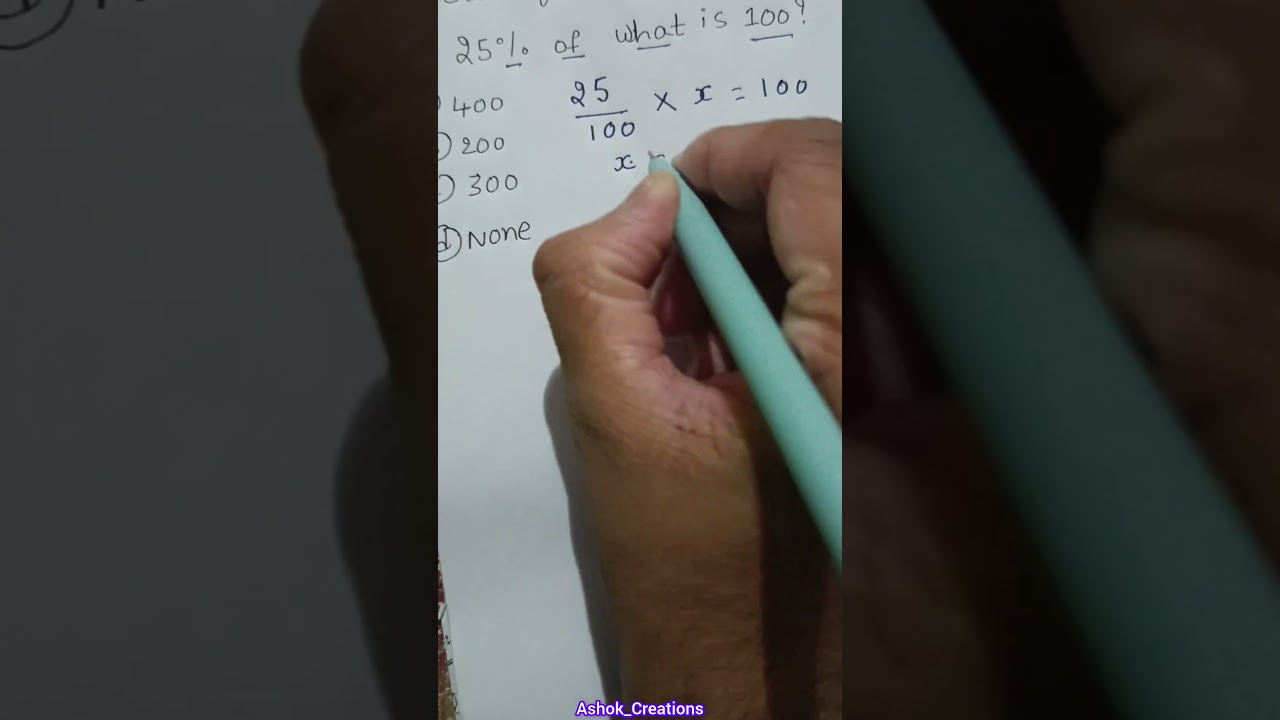 25% of what is 100?
400
25/100 × x = 100
200
x =
300
d) None
Ashok_Creations